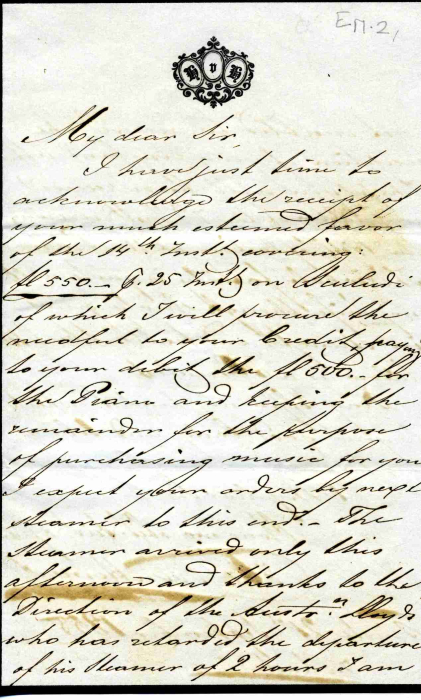 E.M.2,
H v H
My dear Sir,
I have just time to
acknowledge the receipt of
your much esteemed favor
of the 14th Inst. covering:
fl 550.- P. 25 Inst. on
of which I will procure the
needful to your Credit, paying
to your debit the fl 500.- for
the Piano and keeping the
remainder for the purpose
of purchasing music for you
I expect your orders by next
steamer to this end.- The
Steamer arrived only this
afternoon and thanks to the
Direction of the Austrn Lloyds
who has retarded the departure
of his Steamer of 2 hours I am